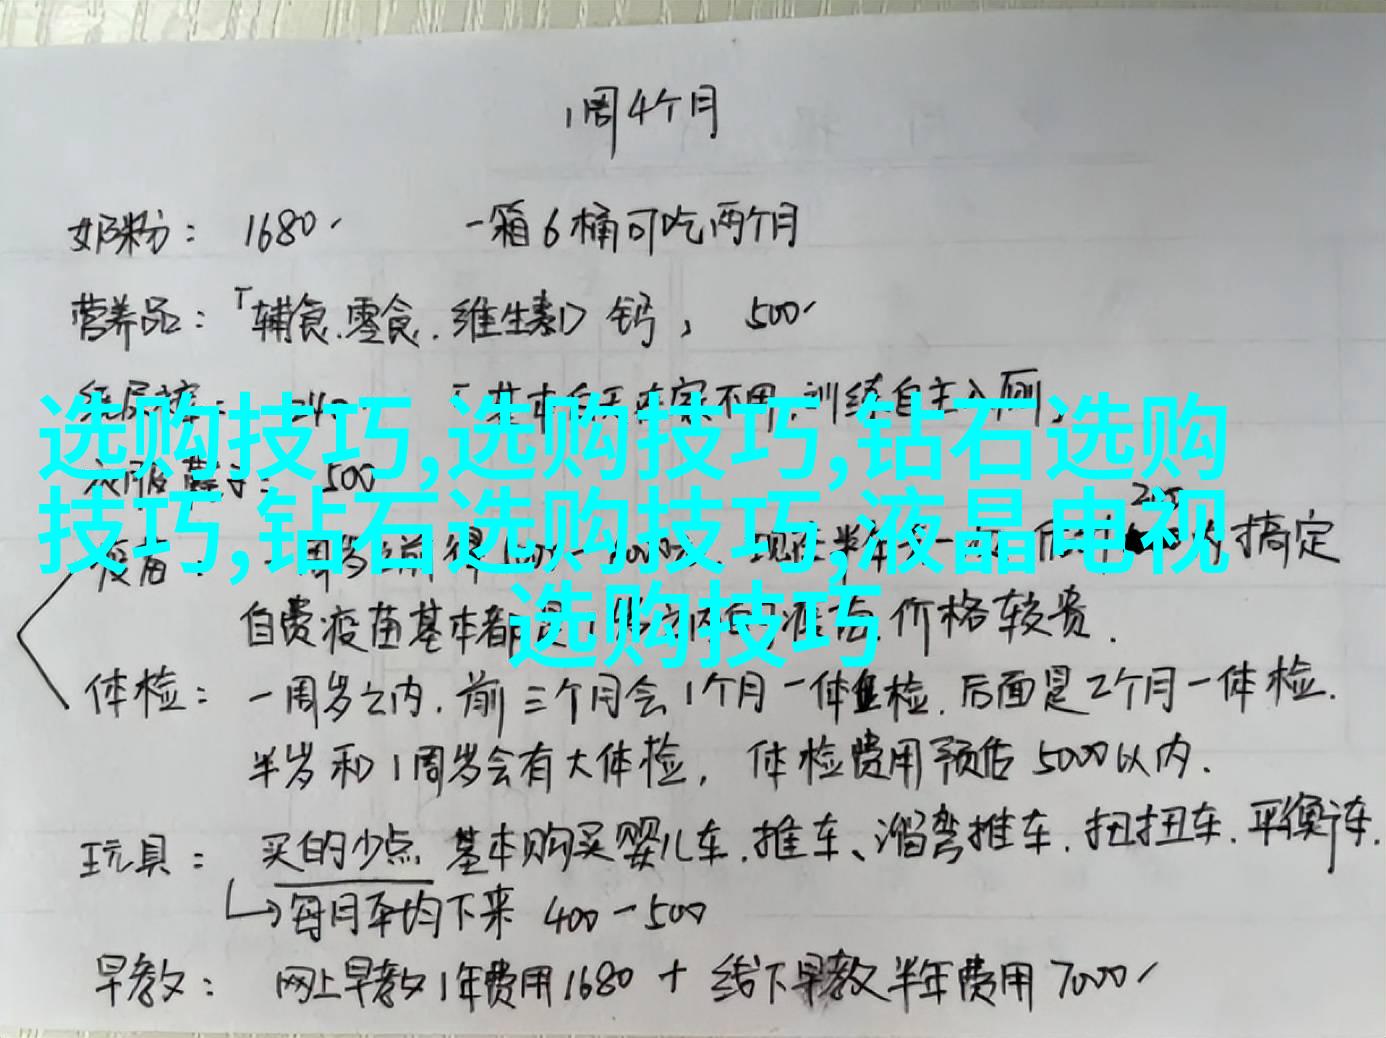 1周4个月
奶粉： 1680 一箱6桶可吃两个月
营养品：「辅食.零食.维生素D 钙， 500
基本白天在家不用，训练自主入厕，
选购技巧,选购技巧,钻石选购
500
技巧,钻石选购技巧,液晶电视
搞定
选购技巧
自费疫苗基本都是 价格较贵.
体检： 一周岁之内.前三个月会1个月一体检.后面是2个月一体检.
半岁和1周岁会有大体检， 体检费用预估5000以内.
玩具： 买的少点 基本购买婴儿车.推车、溜弯推车.扭扭车.平衡车.
每月平均下来 400-500
早教： 网上早教1年费用1680 + 线下早教半年费用7000